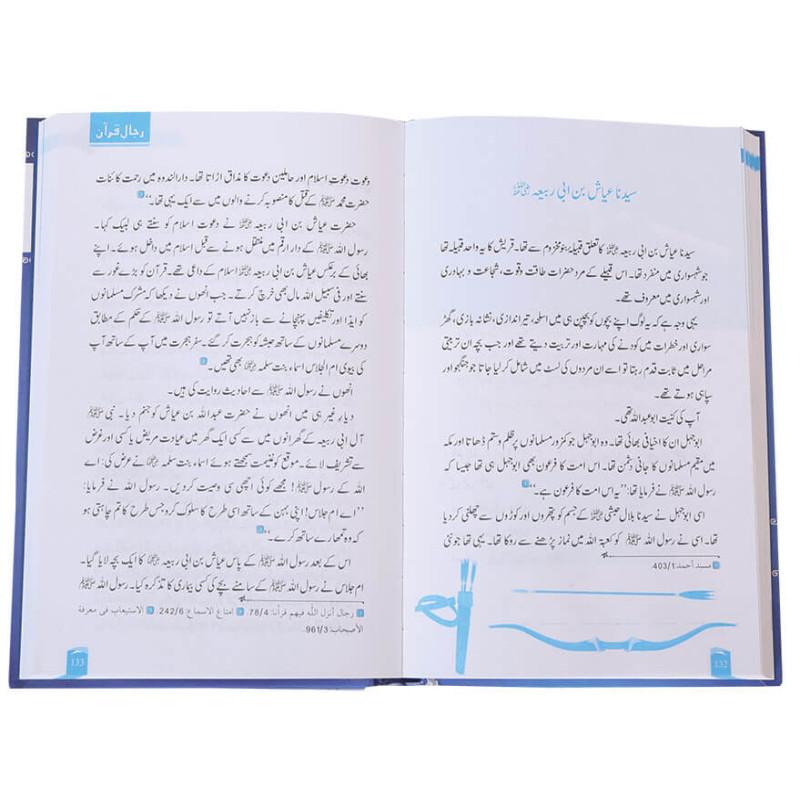 سیدنا عیاش بن ابی ربیعہ رضی اللہ عنہ
سیدنا عیاش بن ابی ربیعہ رضی اللہ عنہ کا تعلق قبیلہ بنو مخزوم سے تھا۔ قریش کا یہ واحد قبیلہ تھا
جو شہسواری میں منفرد تھا۔ اس قبیلے کے مرد حضرات طاقت وقوت، شجاعت و بہادری
اور شہسواری میں معروف تھے۔
یہی وجہ ہے کہ یہ لوگ اپنے بچوں کو بچپن ہی میں اسلحہ، تیر اندازی، نشانہ بازی، گھڑ
سواری اور خطرات میں کودنے کی مہارت اور تربیت دیتے تھے اور جب بچہ ان تربیتی
مراحل میں ثابت قدم رہتا تو اسے ان مردوں کی لسٹ میں شامل کر لیا جاتا جو جنگجو اور
سپاہی ہوتے تھے۔
آپ کی کنیت ابو عبداللہ تھی۔
ابوجہل ان کا اخیافی بھائی تھا۔ وہ ابوجہل جو کمزور مسلمانوں پر ظلم وستم ڈھاتا اور مکہ
میں مقیم مسلمانوں کا جانی دشمن تھا۔ اس امت کا فرعون بھی ابوجہل ہی تھا جیسا کہ
رسول اللہ ﷺ نے فرمایا تھا: ”یہ اس امت کا فرعون ہے۔“
اسی ابوجہل نے سیدنا بلال حبشی رضی اللہ عنہ کے جسم کو پتھروں اور کوڑوں سے چھلنی کر دیا
تھا۔ اسی نے رسول اللہ ﷺ کو کعبۃ اللہ میں نماز پڑھنے سے روکا تھا۔ یہی تھا جو نبی
1 مسند أحمد: 403/1.
132
رجال قرآن
دعوت دعوتِ اسلام اور حاملین دعوت کا مذاق اڑاتا تھا۔ دارالندوہ میں رحمت کائنات
حضرت محمد ﷺ کے قتل کا منصوبہ کرنے والوں میں سے ایک یہی تھا۔“
حضرت عیاش بن ابی ربیعہ رضی اللہ عنہ نے دعوت اسلام کو سنتے ہی لبیک کہا۔
رسول اللہ ﷺ کے دار ارقم میں منتقل ہونے سے قبل اسلام میں داخل ہوئے۔ اپنے
بھائی کے برعکس عیاش بن ابی ربیعہ رضی اللہ عنہ اسلام کے داعی تھے۔ قرآن کو بڑے غور سے
سنتے اور فی سبیل اللہ مال بھی خرچ کرتے۔ جب انھوں نے دیکھا کہ مشرک مسلمانوں
کو ایذا اور تکلیفیں پہنچانے سے باز نہیں آتے تو رسول اللہ ﷺ کے حکم کے مطابق
دوسرے مسلمانوں کے ساتھ حبشہ کو ہجرت کر گئے۔ سفر ہجرت میں آپ کے ساتھ آپ
کی بیوی ام الجلاس اسماء بنت سلمہ رضی اللہ عنہا بھی تھیں۔
انھوں نے رسول اللہ ﷺ سے احادیث روایت کی ہیں۔
دیارِ غیر ہی میں انھوں نے حضرت عبداللہ بن عیاش کو جنم دیا۔ نبی ﷺ
آل ابی ربیعہ کے گھرانوں میں سے کسی ایک گھر میں عیادت مریض یا کسی اور غرض
سے تشریف لائے۔ موقع کو غنیمت سمجھتے ہوئے اسماء بنت سلمہ رضی اللہ عنہا نے عرض کی: اے
اللہ کے رسول ﷺ! مجھے کوئی اچھی سی وصیت کردیں۔ رسول اللہ نے فرمایا:
”اے ام جلاس! اپنی بہن کے ساتھ اسی طرح کا سلوک کرو جس طرح کا تم چاہتی ہو
کہ وہ تمھارے ساتھ کرے۔“
اس کے بعد رسول اللہ ﷺ کے پاس عیاش بن ابی ربیعہ رضی اللہ عنہ کا ایک بچہ لایا گیا۔
ام جلاس نے رسول اللہ ﷺ کے سامنے بچے کی کسی بیماری کا تذکرہ کیا۔ رسول اللہ ﷺ
رجال أنزل اللّٰه فيهم قرآنا: 78/4. امتاع الاسماع: 242/6. الاستيعاب في معرفة
الأصحاب: 961/3.
133